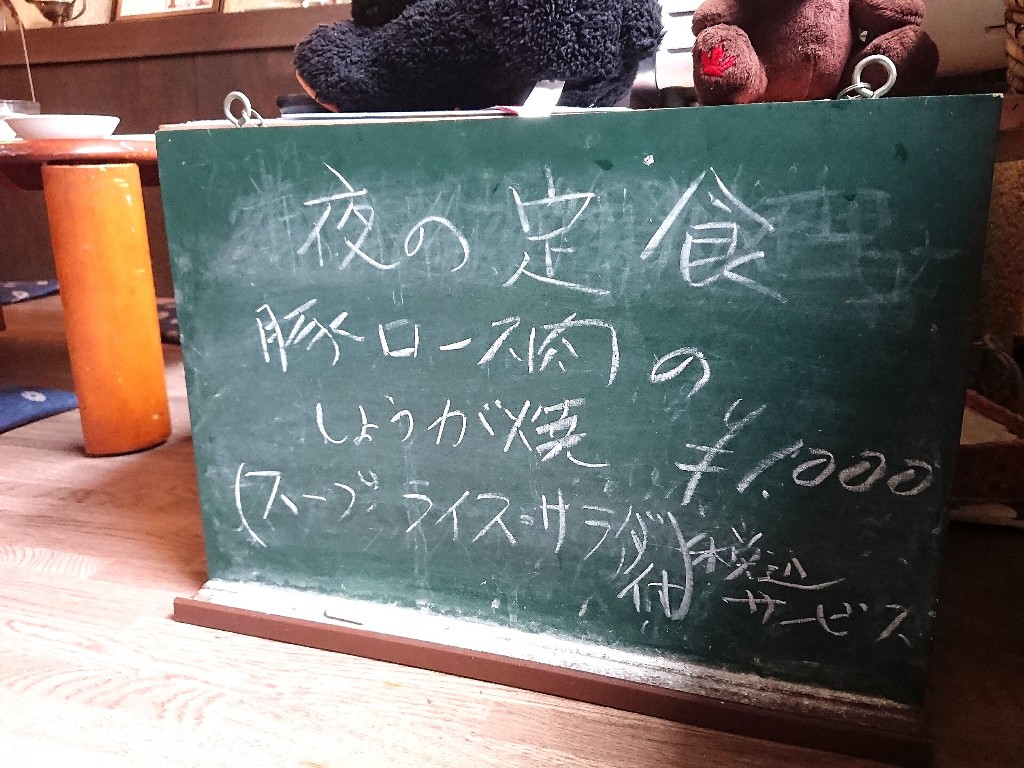 夜の定食
豚ロース肉の
しょうが焼 ¥1,000
(スープ・ライス・サラダ付)税込
サービス